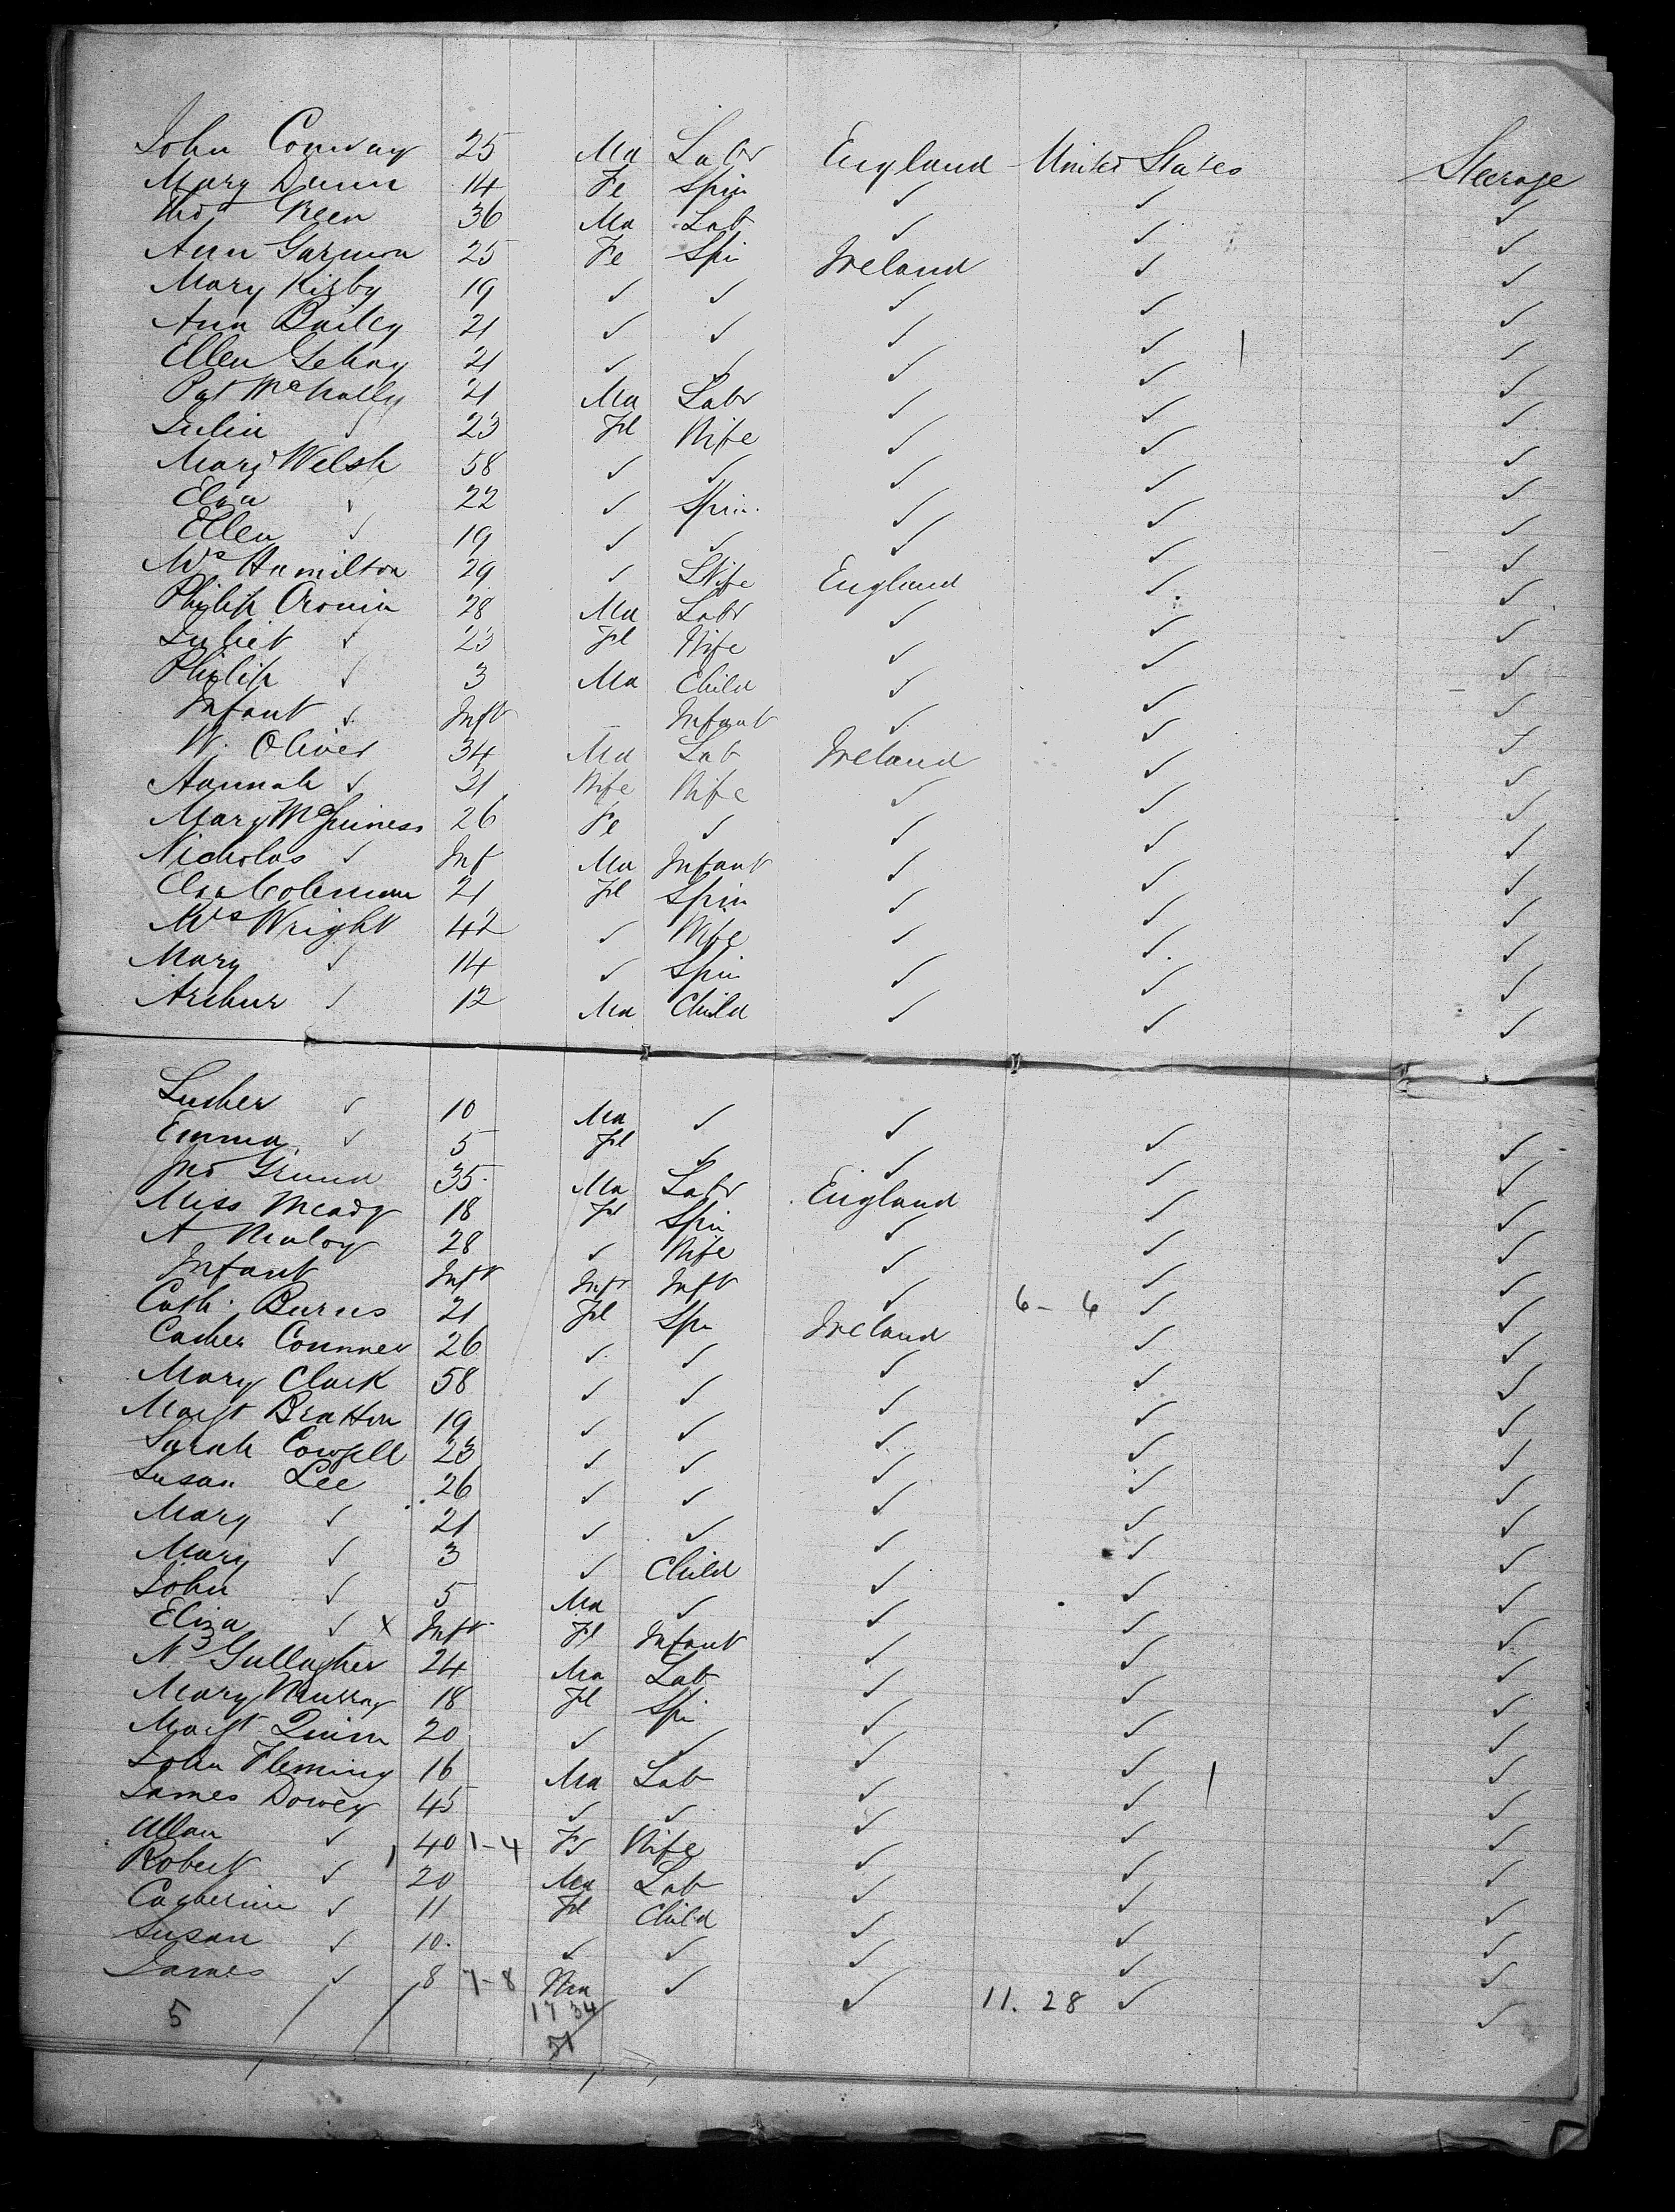 John Conway 25 Ma Labr England United States Steerage
Mary Dunn 14 Fe Spin ✓ ✓ ✓
Thos Green 36 Ma Lab ✓ ✓ ✓
Ann 25 Fe Spi Ireland ✓ ✓
Mary Kirby 19 ✓ ✓ ✓ ✓ ✓
Ann Bailey 21 ✓ ✓ ✓ ✓ ✓
Ellen 21 ✓ ✓ ✓ ✓ ✓
Pat McNally 21 Ma Labr ✓ ✓ ✓
Julia ✓ 23 Fel Wife ✓ ✓ ✓
Mary Welsh 58 ✓ ✓ ✓ ✓ ✓
Eliza ✓ 22 ✓ Spin. ✓ ✓ ✓
Ellen ✓ 19 ✓ ✓ ✓ ✓ ✓
Mrs Hamilton 29 ✓ Wife England ✓ ✓
Philip Cronin 28 Ma Labr ✓ ✓ ✓
Juliet ✓ 23 Fel Wife ✓ ✓ ✓
Philip ✓ 3 Ma Child ✓ ✓ ✓
Infant ✓ Inft — Infant ✓ ✓ ✓
W. Oliver 34 Ma Lab Ireland ✓ ✓
Hannah ✓ 31 Wife Wife ✓ ✓ ✓
Mary McGuiness 26 Fe ✓ ✓ ✓ ✓
Nicholas ✓ Inf Ma Infant ✓ ✓ ✓
Coleman 21 Fel Spin ✓ ✓ ✓
Mrs Wright 42 ✓ Wife ✓ ✓ ✓
Mary ✓ 14 ✓ Spin ✓ ✓ ✓
Arthur ✓ 12 Ma Child ✓ ✓ ✓
Luther ✓ 10 Ma ✓ ✓ ✓ ✓
Emma ✓ 5 Fel ✓ ✓ ✓ ✓
Jno 35 Ma Labr England ✓ ✓
Miss Meady 18 Fel Spin ✓ ✓ ✓
A Maloy 28 ✓ Wife ✓ ✓ ✓
Infant Inft Inft Inft ✓ ✓ ✓
Cath. Burns 21 Fel Spn Ireland 6–6 ✓ ✓
Conner 26 ✓ ✓ ✓ ✓ ✓
Mary Clark 58 ✓ ✓ ✓ ✓ ✓
Margt Bratton 19 ✓ ✓ ✓ ✓ ✓
Sarah Cowell 23 ✓ ✓ ✓ ✓ ✓
Susan Lee 26 ✓ ✓ ✓ ✓ ✓
Mary ✓ 21 ✓ ✓ ✓ ✓ ✓
Mary ✓ 3 ✓ Child ✓ ✓ ✓
John ✓ 5 Ma ✓ ✓ ✓ ✓
Eliza ✓ x Inft Fl Infant ✓ ✓ ✓
Gallagher 24 Ma Lab ✓ ✓ ✓
Mary Murray 18 Fel Spi ✓ ✓ ✓
Margt Quinn 20 ✓ ✓ ✓ ✓ ✓
John Fleming 16 Ma Lab ✓ ✓ ✓
James Dowey 45 ✓ ✓ ✓ ✓ ✓
Allan ✓ 40 1–4 Fe Wife ✓ ✓ ✓
Robert ✓ 20 Ma Lab ✓ ✓ ✓
Catherine ✓ 11 Fel Child ✓ ✓ ✓
Susan ✓ 10. ✓ ✓ ✓ ✓ ✓
James ✓ 8 7–8 Ma ✓ ✓ 11. 28 ✓ ✓
5 17 34
51